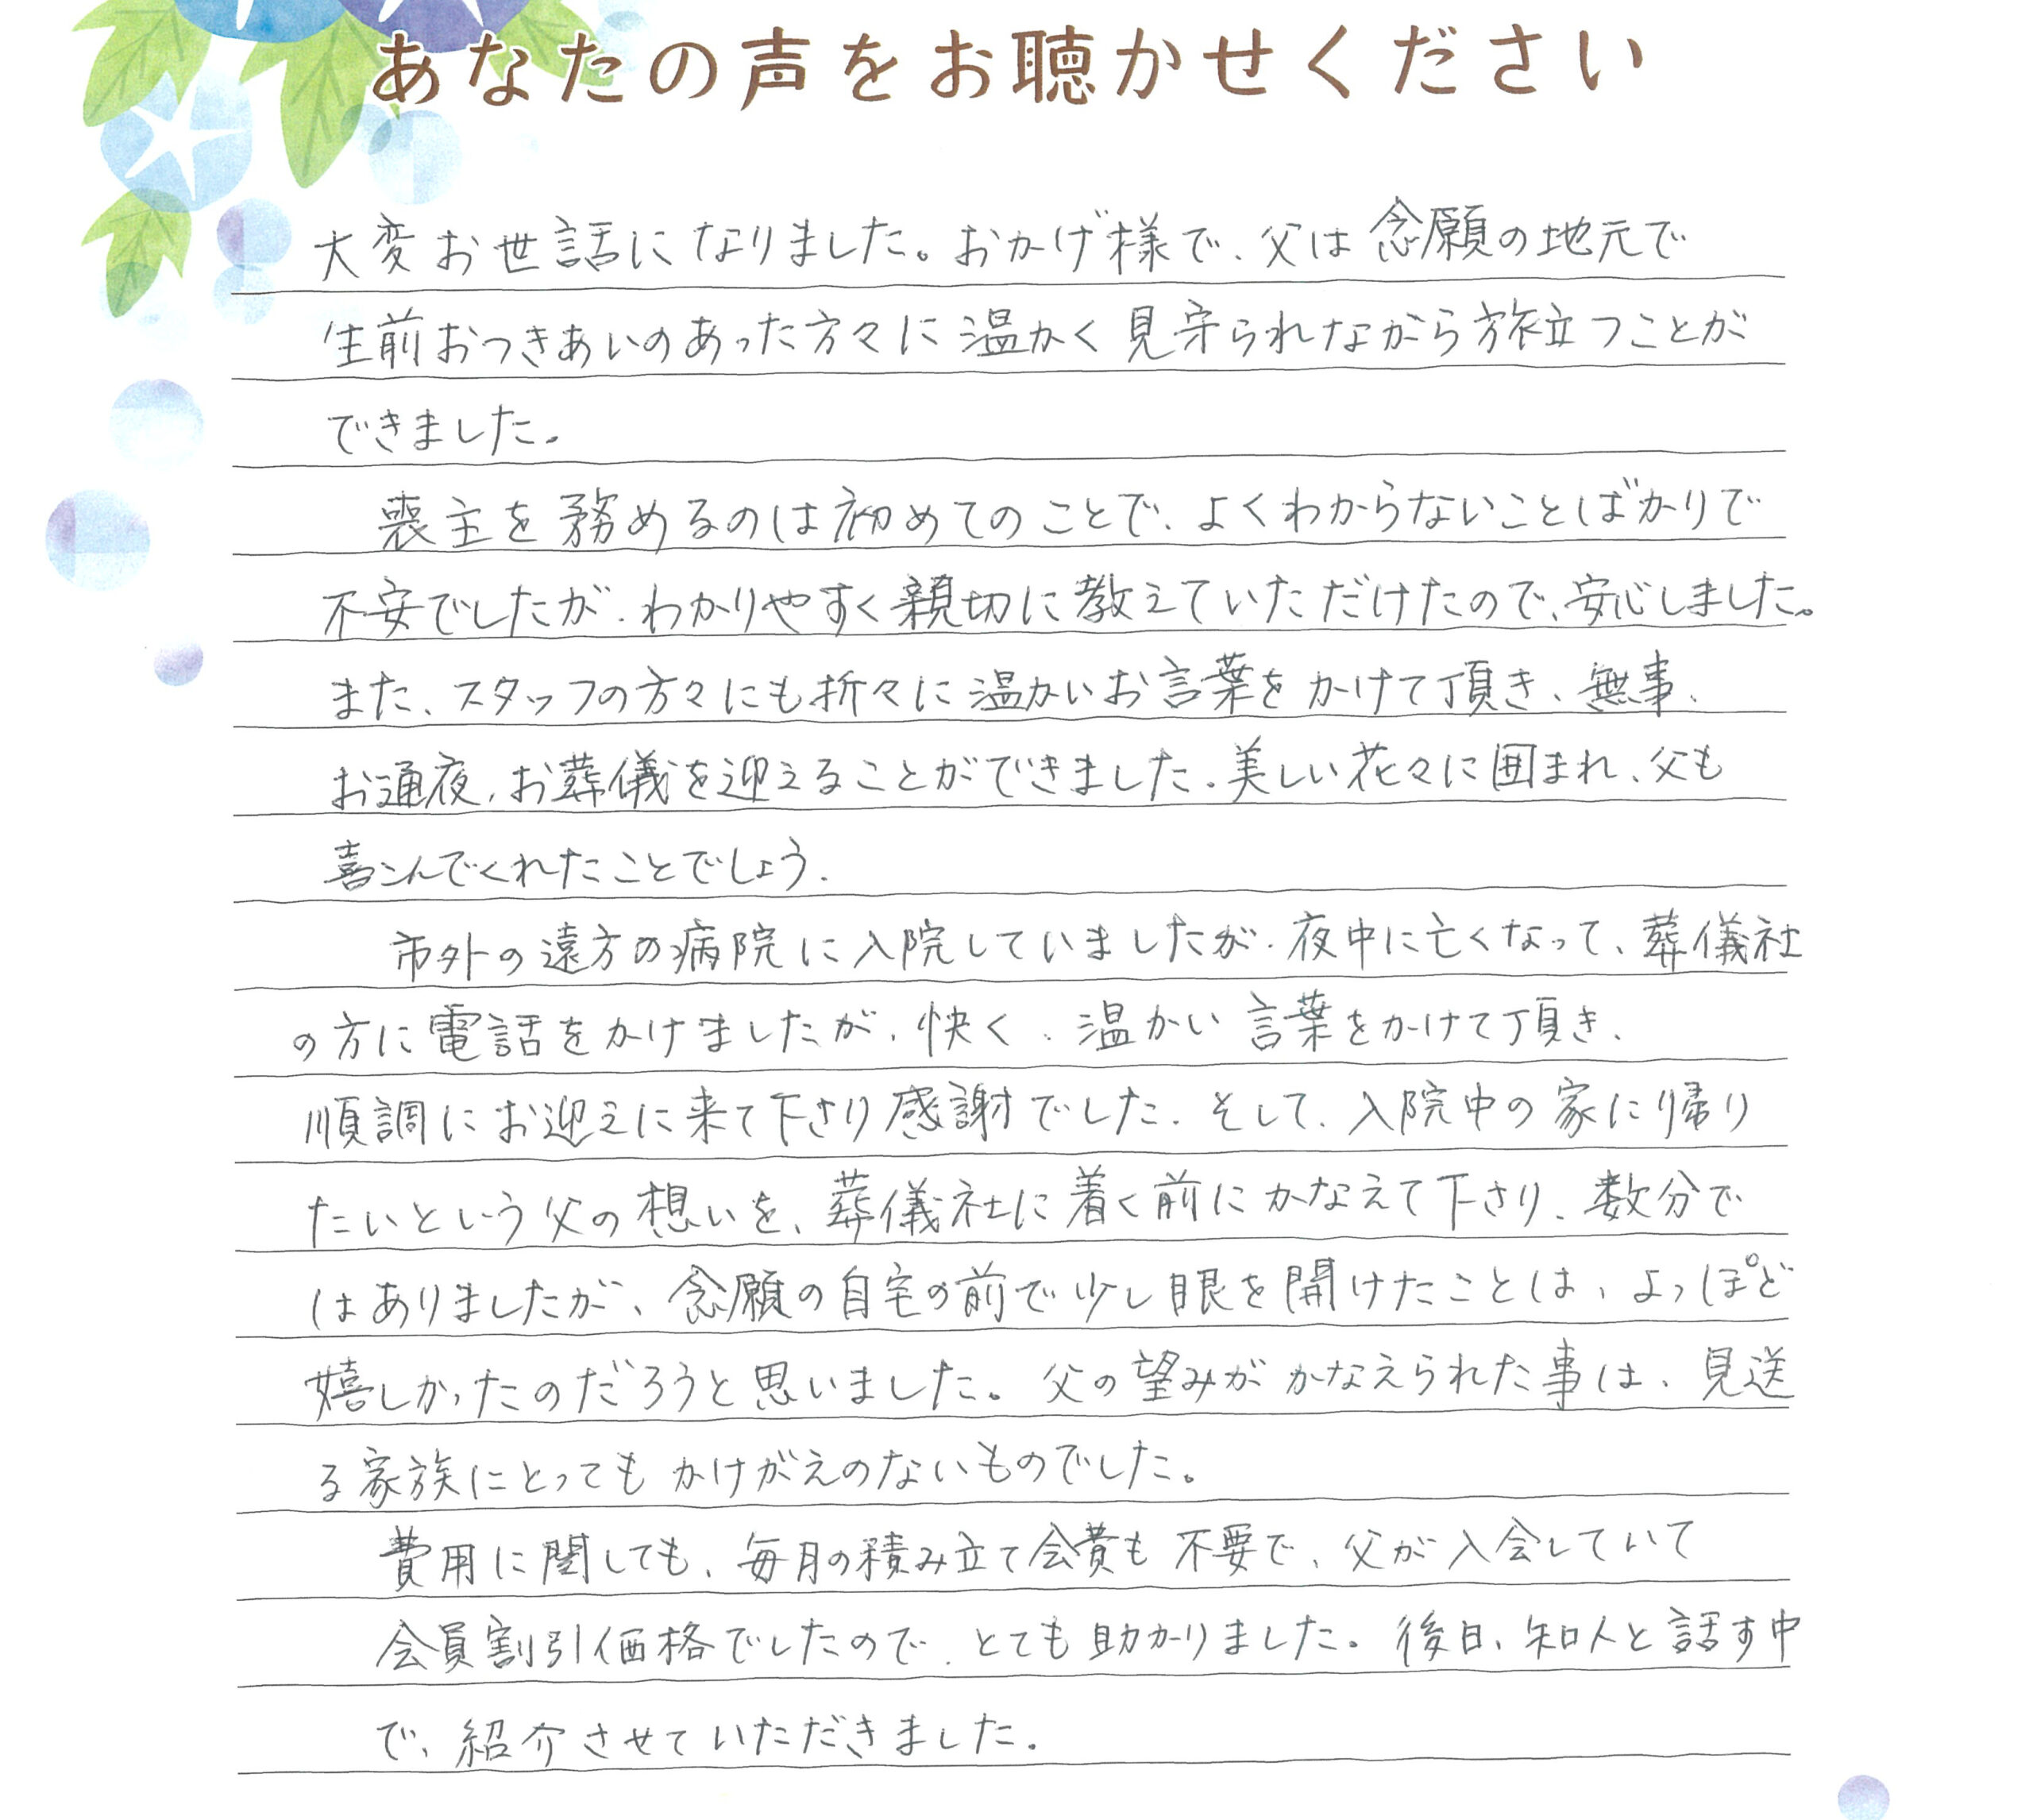 あなたの声をお聴かせください
大変お世話になりました。おかげ様で、父は念願の地元で
生前おつきあいのあった方々に温かく見守られながら旅立つことが
できました。
喪主を務めるのは初めてのことで、よくわからないことばかりで
不安でしたが、わかりやすく親切に教えていただけたので、安心しました。
また、スタッフの方々にも折々に温かいお言葉をかけて頂き、無事、
お通夜、お葬儀を迎えることができました。美しい花々に囲まれ、父も
喜こんでくれたことでしょう。
市外の遠方の病院に入院していましたが、夜中に亡くなって、葬儀社
の方に電話をかけましたが、快く、温かい言葉をかけて頂き、
順調にお迎えに来て下さり感謝でした。そして、入院中の家に帰り
たいという父の想いを、葬儀社に着く前にかなえて下さり、数分で
はありましたが、念願の自宅の前で少し眼を開けたことは、よっぽど
嬉しかったのだろうと思いました。父の望みがかなえられた事は、見送
る家族にとってもかけがえのないものでした。
費用に関しても、毎月の積み立て会費も不要で、父が入会していて
会員割引価格でしたので、とても助かりました。後日、知人と話す中
で、紹介させていただきました。